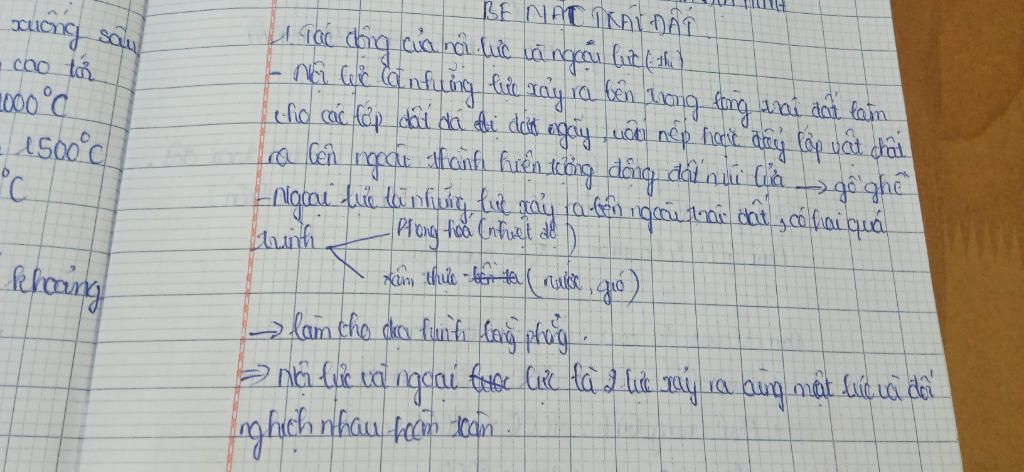 xuống sâu
cao tới
1000°C
1500°C
°C
khoảng
BỀ MẶT TRÁI ĐẤT
1. Tác động của nội lực và ngoại lực
- Nội lực là những lực xảy ra bên trong lòng trái đất làm
cho các lớp đất đá bị đứt gãy, uốn nếp hoặc đẩy lớp vật chất
ra bên ngoài thành hiện tượng động đất núi lửa → gồ ghề
- Ngoại lực là những lực xảy ra bên ngoài trái đất, có hai quá
trình
Phong hóa (nhiệt độ)
xâm thực (nước, gió)
→ làm cho địa hình bằng phẳng.
⇒ Nội lực và ngoại lực là 2 lực xảy ra cùng một lúc và đối
nghịch nhau hoàn toàn.